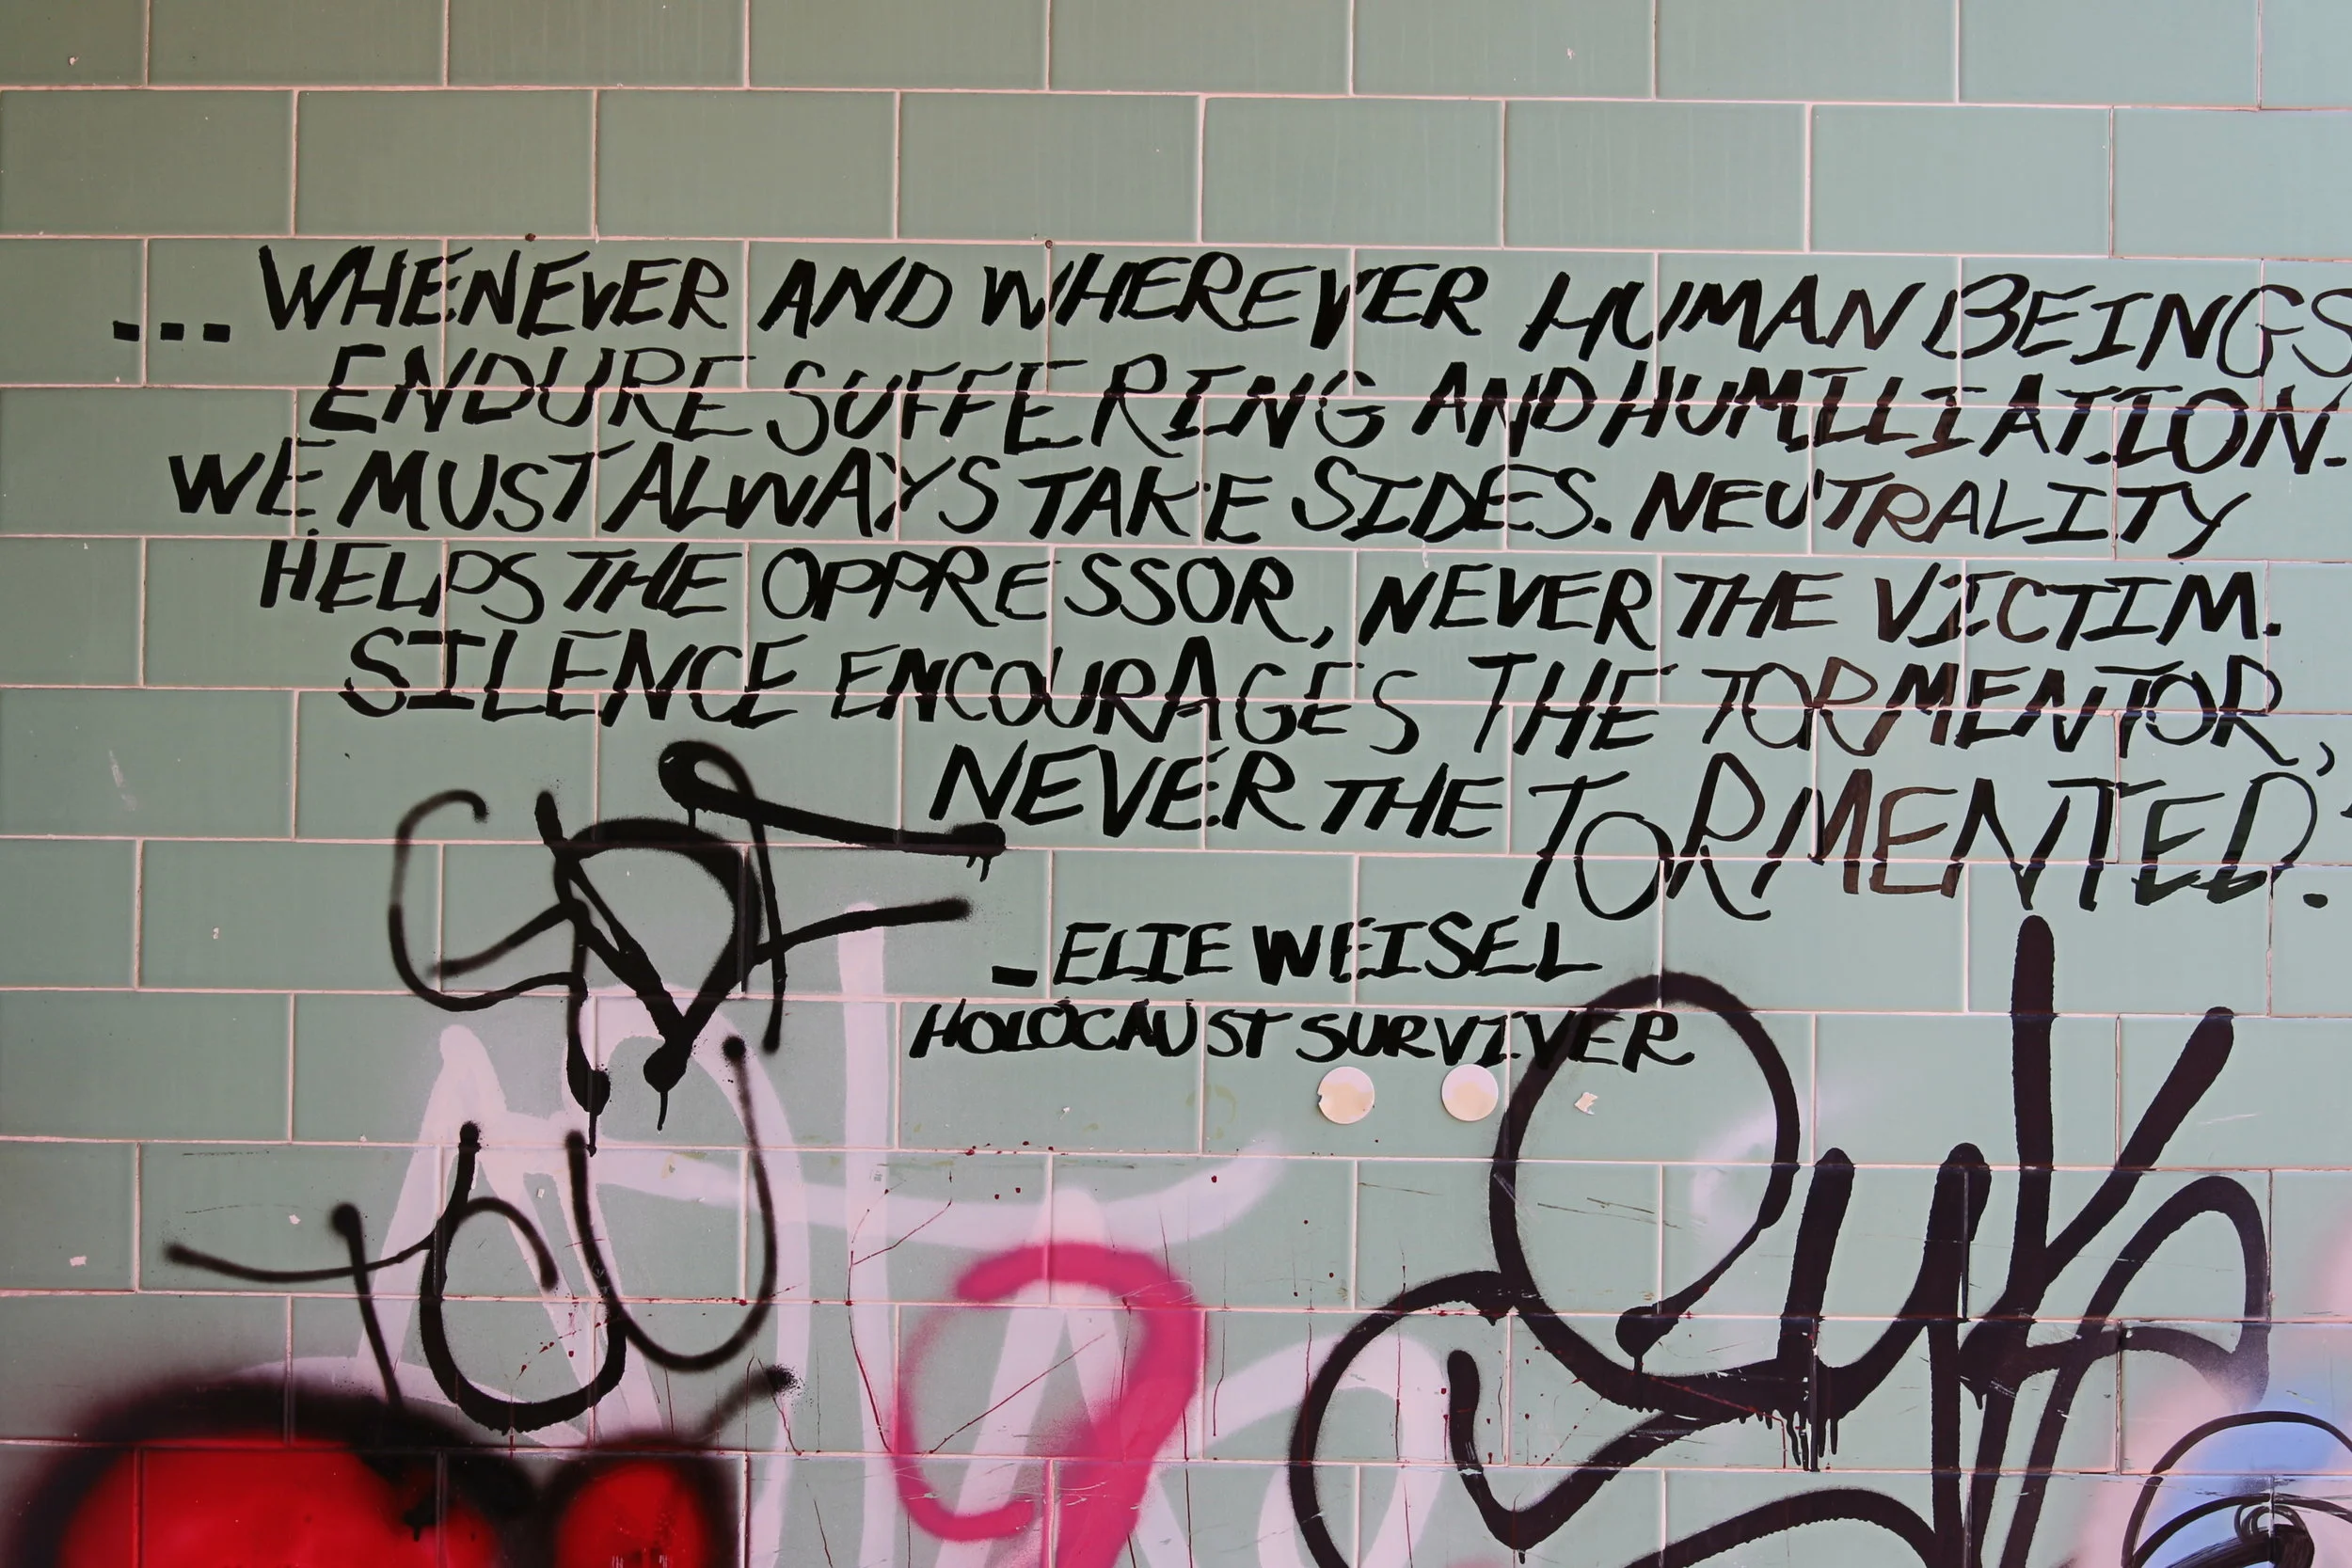 ...WHENEVER AND WHEREVER HUMAN BEINGS
ENDURE SUFFERING AND HUMILIATION.
WE MUST ALWAYS TAKE SIDES. NEUTRALITY
HELPS THE OPPRESSOR, NEVER THE VICTIM.
SILENCE ENCOURAGES THE TORMENTOR,
NEVER THE TORMENTED.
-ELIE WEISEL
HOLOCAUST SURVIVER